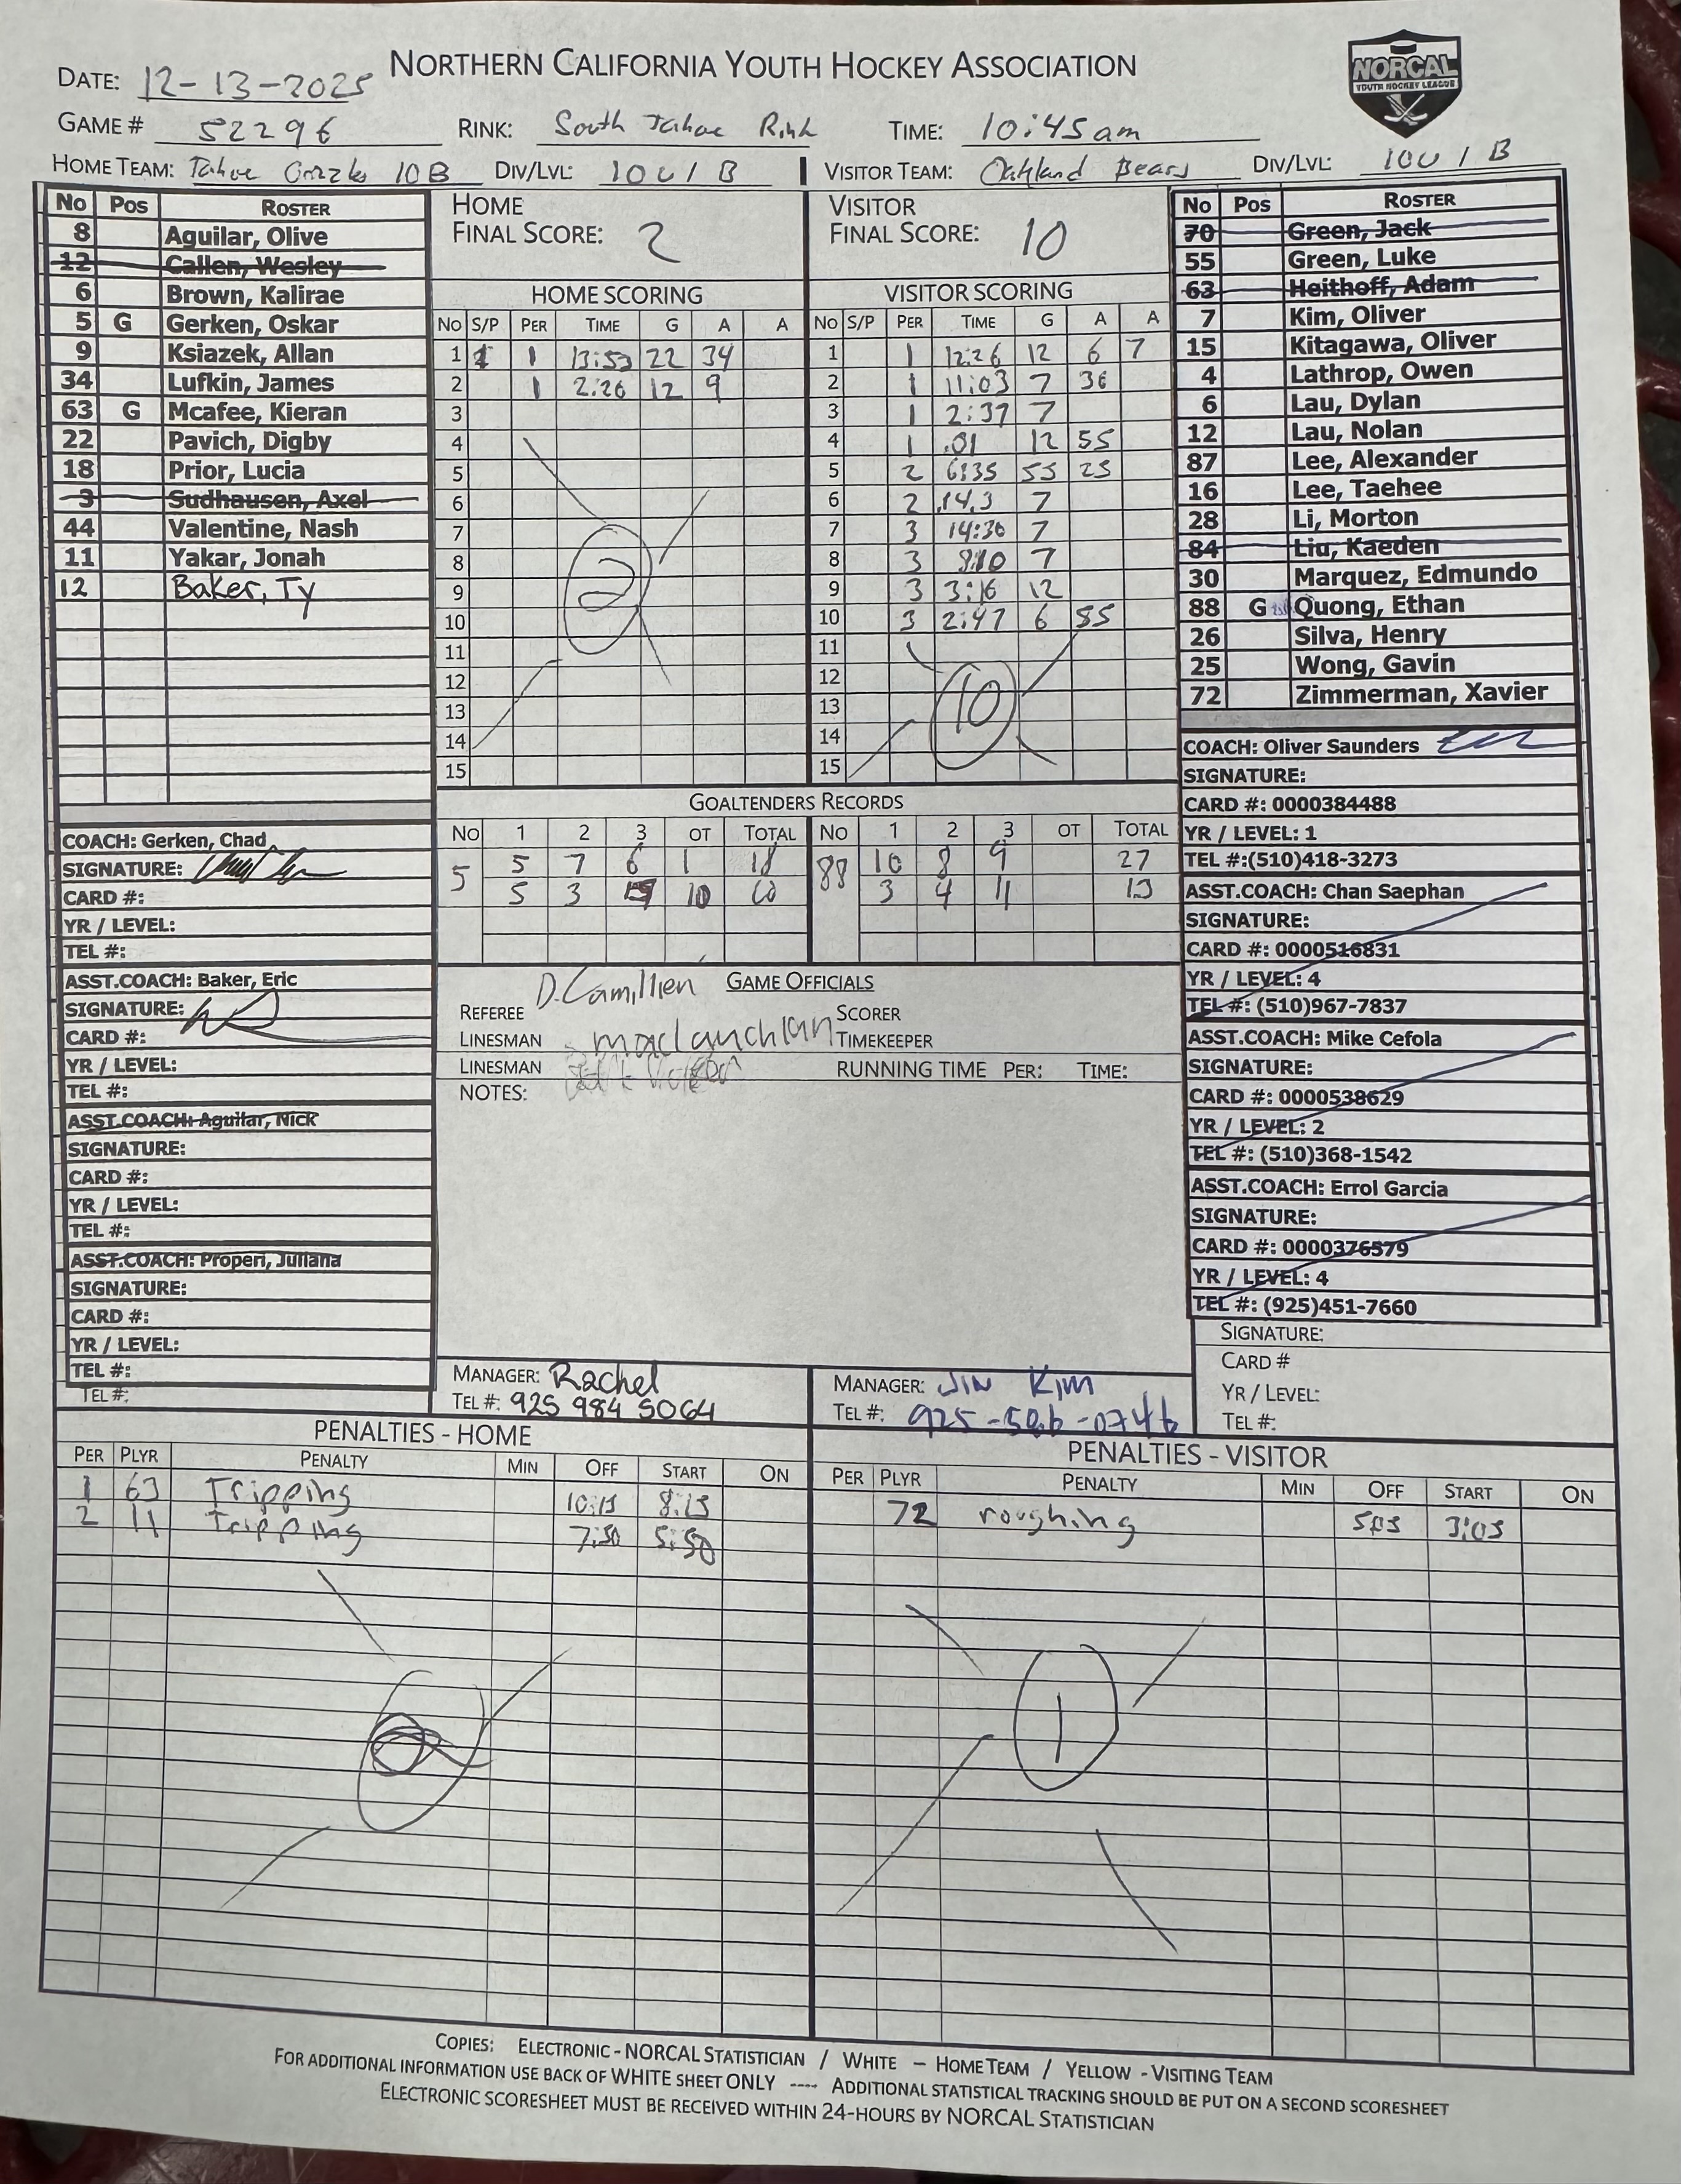 NORTHERN CALIFORNIA YOUTH HOCKEY ASSOCIATION
NORCAL
YOUTH HOCKEY LEAGUE
DATE: 12-13-2025
GAME # 52296 RINK: South Tahoe Rink TIME: 10:45am
HOME TEAM: Tahoe Grizzlies 10B DIV/LVL: 10U / B VISITOR TEAM: Oakland Bears DIV/LVL: 10U / B
No Pos ROSTER
8 Aguilar, Olive
12 Callen, Wesley
6 Brown, Kalirae
5 G Gerken, Oskar
9 Ksiazek, Allan
34 Lufkin, James
63 G Mcafee, Kieran
22 Pavich, Digby
18 Prior, Lucia
3 Sudhausen, Axel
44 Valentine, Nash
11 Yakar, Jonah
12 Baker, Ty
COACH: Gerken, Chad
SIGNATURE:
CARD #:
YR / LEVEL:
TEL #:
ASST.COACH: Baker, Eric
SIGNATURE:
CARD #:
YR / LEVEL:
TEL #:
ASST.COACH: Aguilar, Nick
SIGNATURE:
CARD #:
YR / LEVEL:
TEL #:
ASST.COACH: Properi, Juliana
SIGNATURE:
CARD #:
YR / LEVEL:
TEL #:
TEL #:
HOME
FINAL SCORE: 2
HOME SCORING
No S/P PER TIME G A A
1 1 13:53 22 34
2 1 2:26 12 9
3
4
5
6
7
8
9
10
11
12
13
14
15
2
VISITOR
FINAL SCORE: 10
VISITOR SCORING
No S/P PER TIME G A A
1 1 12:26 12 6 7
2 1 11:03 7 36
3 1 2:37 7
4 1 .01 12 55
5 2 6:35 55 25
6 2 14.3 7
7 3 14:30 7
8 3 8:10 7
9 3 3:16 12
10 3 2:47 6 55
11
12
13
14
15
10
GOALTENDERS RECORDS
NO 1 2 3 OT TOTAL NO 1 2 3 OT TOTAL
5 5 7 6 1 18 88 10 8 9 27
5 3 10 3 4 11 13
GAME OFFICIALS
REFEREE D. Camillien SCORER
LINESMAN maclanchlan TIMEKEEPER
LINESMAN RUNNING TIME PER: TIME:
NOTES:
MANAGER: Rachel
TEL #: 925 984 5064
MANAGER: Jin Kim
TEL #: 925-586-0746
No Pos ROSTER
70 Green, Jack
55 Green, Luke
63 Heithoff, Adam
7 Kim, Oliver
15 Kitagawa, Oliver
4 Lathrop, Owen
6 Lau, Dylan
12 Lau, Nolan
87 Lee, Alexander
16 Lee, Taehee
28 Li, Morton
84 Liu, Kaeden
30 Marquez, Edmundo
88 G Quong, Ethan
26 Silva, Henry
25 Wong, Gavin
72 Zimmerman, Xavier
COACH: Oliver Saunders
SIGNATURE:
CARD #: 0000384488
YR / LEVEL: 1
TEL #:(510)418-3273
ASST.COACH: Chan Saephan
SIGNATURE:
CARD #: 0000516831
YR / LEVEL: 4
TEL #: (510)967-7837
ASST.COACH: Mike Cefola
SIGNATURE:
CARD #: 0000538629
YR / LEVEL: 2
TEL #: (510)368-1542
ASST.COACH: Errol Garcia
SIGNATURE:
CARD #: 0000376579
YR / LEVEL: 4
TEL #: (925)451-7660
SIGNATURE:
CARD #
YR / LEVEL:
TEL #:
PENALTIES - HOME
PER PLYR PENALTY MIN OFF START ON
1 63 Tripping 10:15 8:15
2 11 Tripping 7:50 5:50
2
PENALTIES - VISITOR
PER PLYR PENALTY MIN OFF START ON
72 roughing 5:05 3:05
1
COPIES: ELECTRONIC - NORCAL STATISTICIAN / WHITE – HOME TEAM / YELLOW - VISITING TEAM
FOR ADDITIONAL INFORMATION USE BACK OF WHITE SHEET ONLY ---- ADDITIONAL STATISTICAL TRACKING SHOULD BE PUT ON A SECOND SCORESHEET
ELECTRONIC SCORESHEET MUST BE RECEIVED WITHIN 24-HOURS BY NORCAL STATISTICIAN